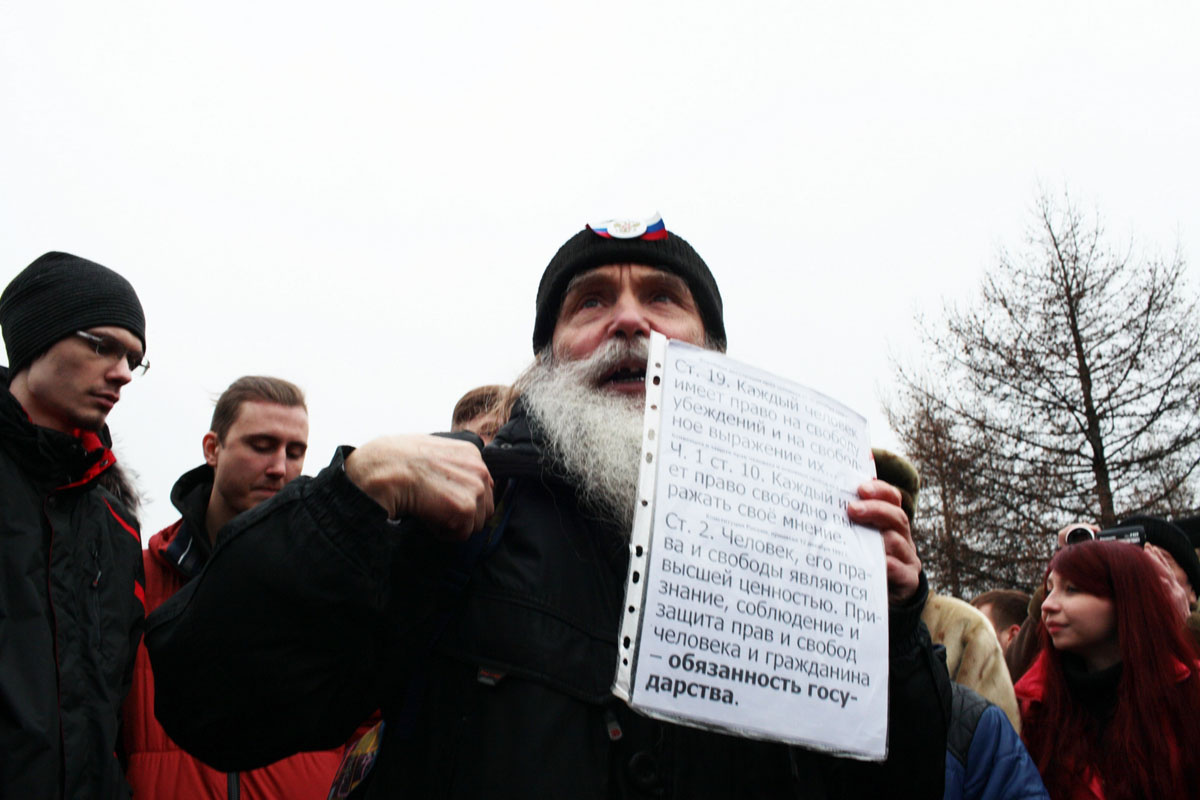 Ст. 19. Каждый человек
имеет право на свободу
убеждений и на свобод-
ное выражение их.
Ч. 1 ст. 10. Каждый и
ет право свободно вы
ражать своё мнение.
Ст. 2. Человек, его пра-
ва и свободы являются
высшей ценностью. При-
знание, соблюдение и
защита прав и свобод
человека и гражданина
– обязанность госу-
дарства.